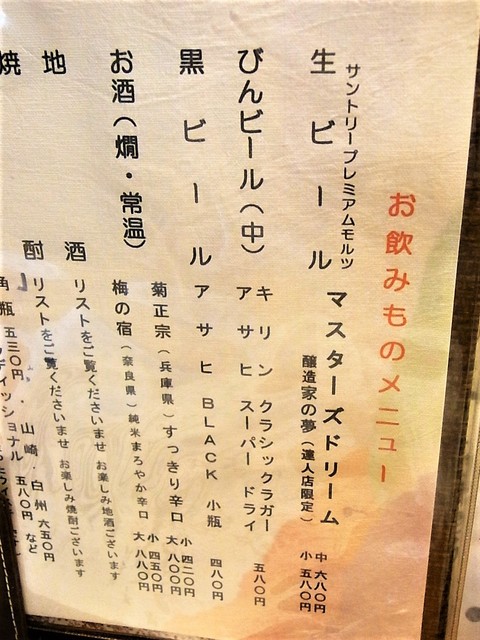 お飲みものメニュー
サントリープレミアムモルツ
生ビール マスターズドリーム 中 六八〇円
醸造家の夢（達人店限定） 小 五八〇円
びんビール（中） キリン クラシックラガー
アサヒ スーパー ドライ 五八〇円
黒ビール アサヒ BLACK 小瓶 四八〇円
お酒（燗・常温） 菊正宗（兵庫県）すっきり辛口 小 四二〇円 大 八〇〇円
梅の宿（奈良県）純米まろやか辛口 小 四五〇円 大 八八〇円
地酒 リストをご覧くださいませ お楽しみ地酒ございます
焼酎 リストをご覧くださいませ お楽しみ焼酎ございます
・山崎・白州 六五〇円 など
角瓶 五三〇円
ディッショナル 五八〇円